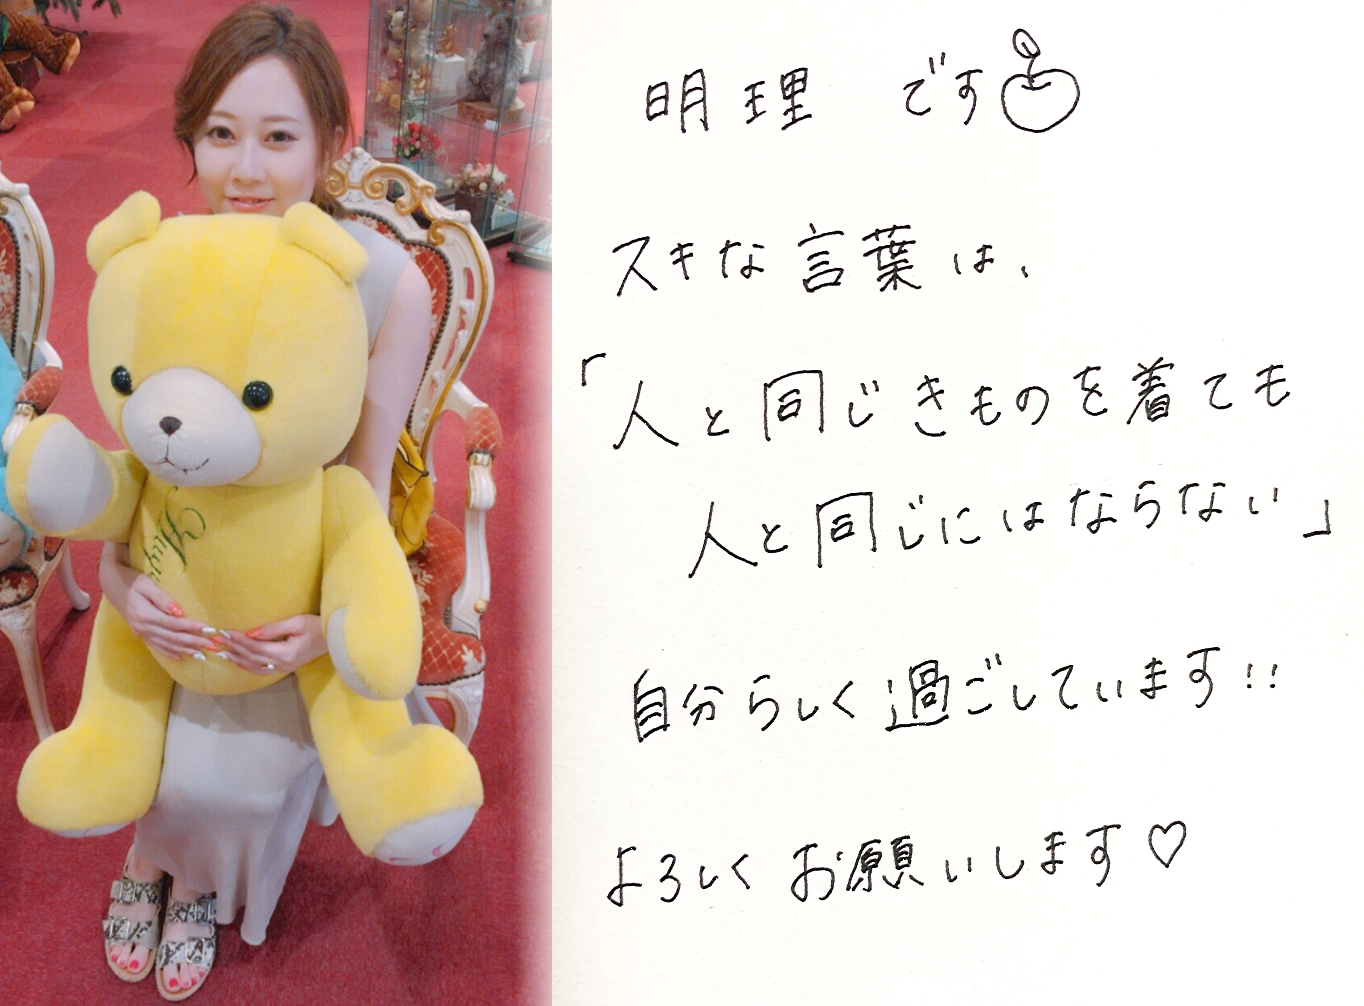 明理 です
スキな言葉は、
「人と同じきものを着ても
人と同じにはならない」
自分らしく過ごしています!!
よろしくお願いします♡